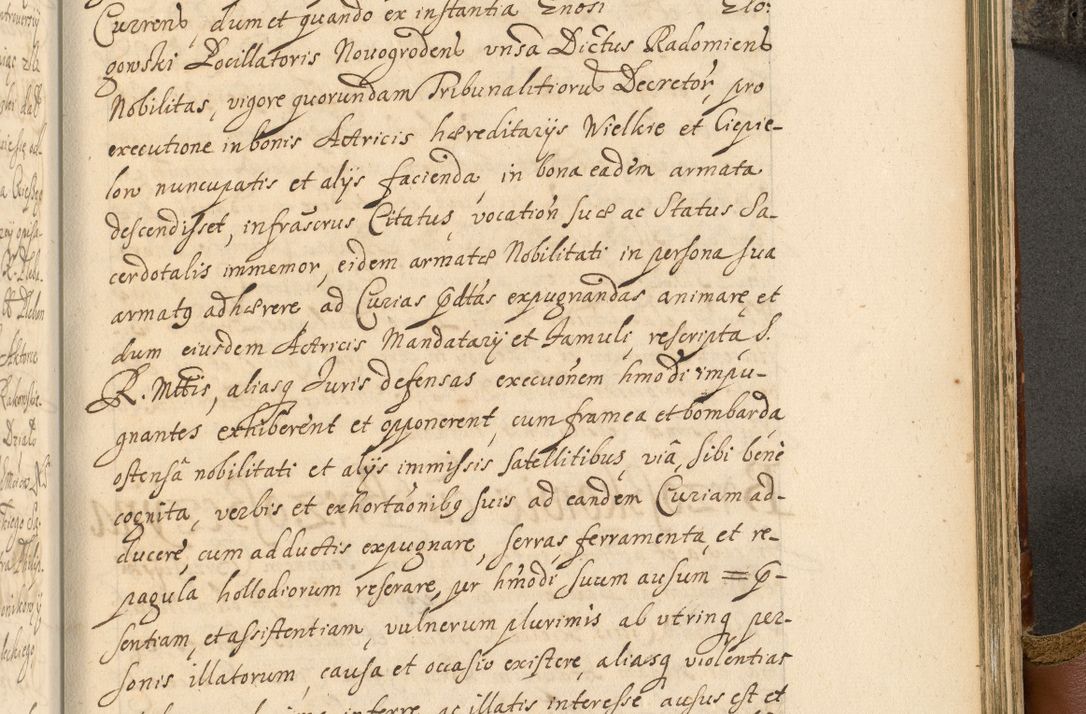 Currens, dum et quando ex instantia Gnosi Zło:
gowski Pocillatoris Novogrodens unsa Dictus Radomiens
Nobilitas, vigore quorundam Tribunalitioru Decretor, pro
executione in bonis Actricis hæreditarijs Wielkie et Ciepie-
low nuncupatis et alijs facienda, in bona eadem armata
descendisset, infrascrus Citatus, vocation suæ ac Status Sa-
cerdotalis immemor, eidem armatæ Nobilitati in persona sua
armatq adhærere ad Curias pdtas expugnandas animare et
dum eiusdem Actricis Mandatarij et Famuli, rescripta S.
R. Mttis, aliasq Iuris defensas execuonem hmodi impu-
gnantes exhiberent et opponerent, cum framea et bombarda
ostensa nobilitati et alijs immissis satellitibus, via, sibi bene
cognita, verbis et exhortaonibq suis ad eandem Curiam ad-
ducere, cum adductis expugnare, serras ferramenta, et re-
pagula hollodiorum reserare, per hmodi suum ausum = p-
sentiam, et assistentiam, vulnerum plurimis ab utrinq per-
sonis illatorum, causa et occasio existere, aliasq violentias
inferre, ac illatis interesse ausus est et